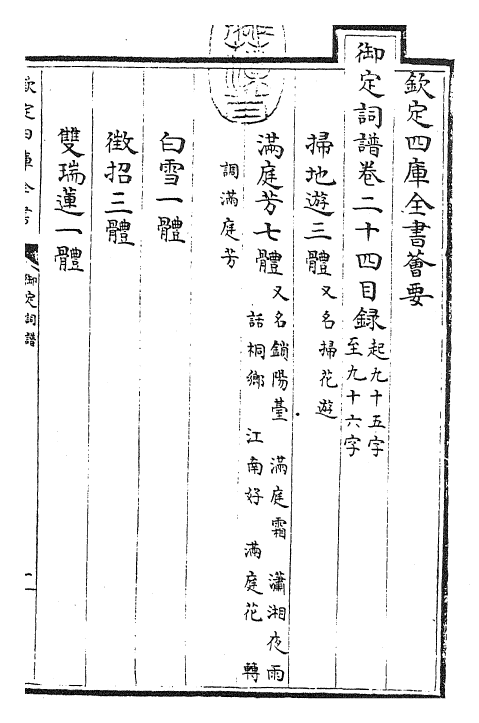 欽定四庫全書薈要
御定詞譜卷二十四目録
起九十五字
至九十六字
掃地遊三體
又名掃花遊
滿庭芳七體
又名鎖陽臺 滿庭霜 瀟湘夜雨
話桐鄉 江南好 滿庭花 轉
調滿庭芳
白雪一體
徴招三體
雙瑞蓮一體
欽定四庫全書
御定詞譜